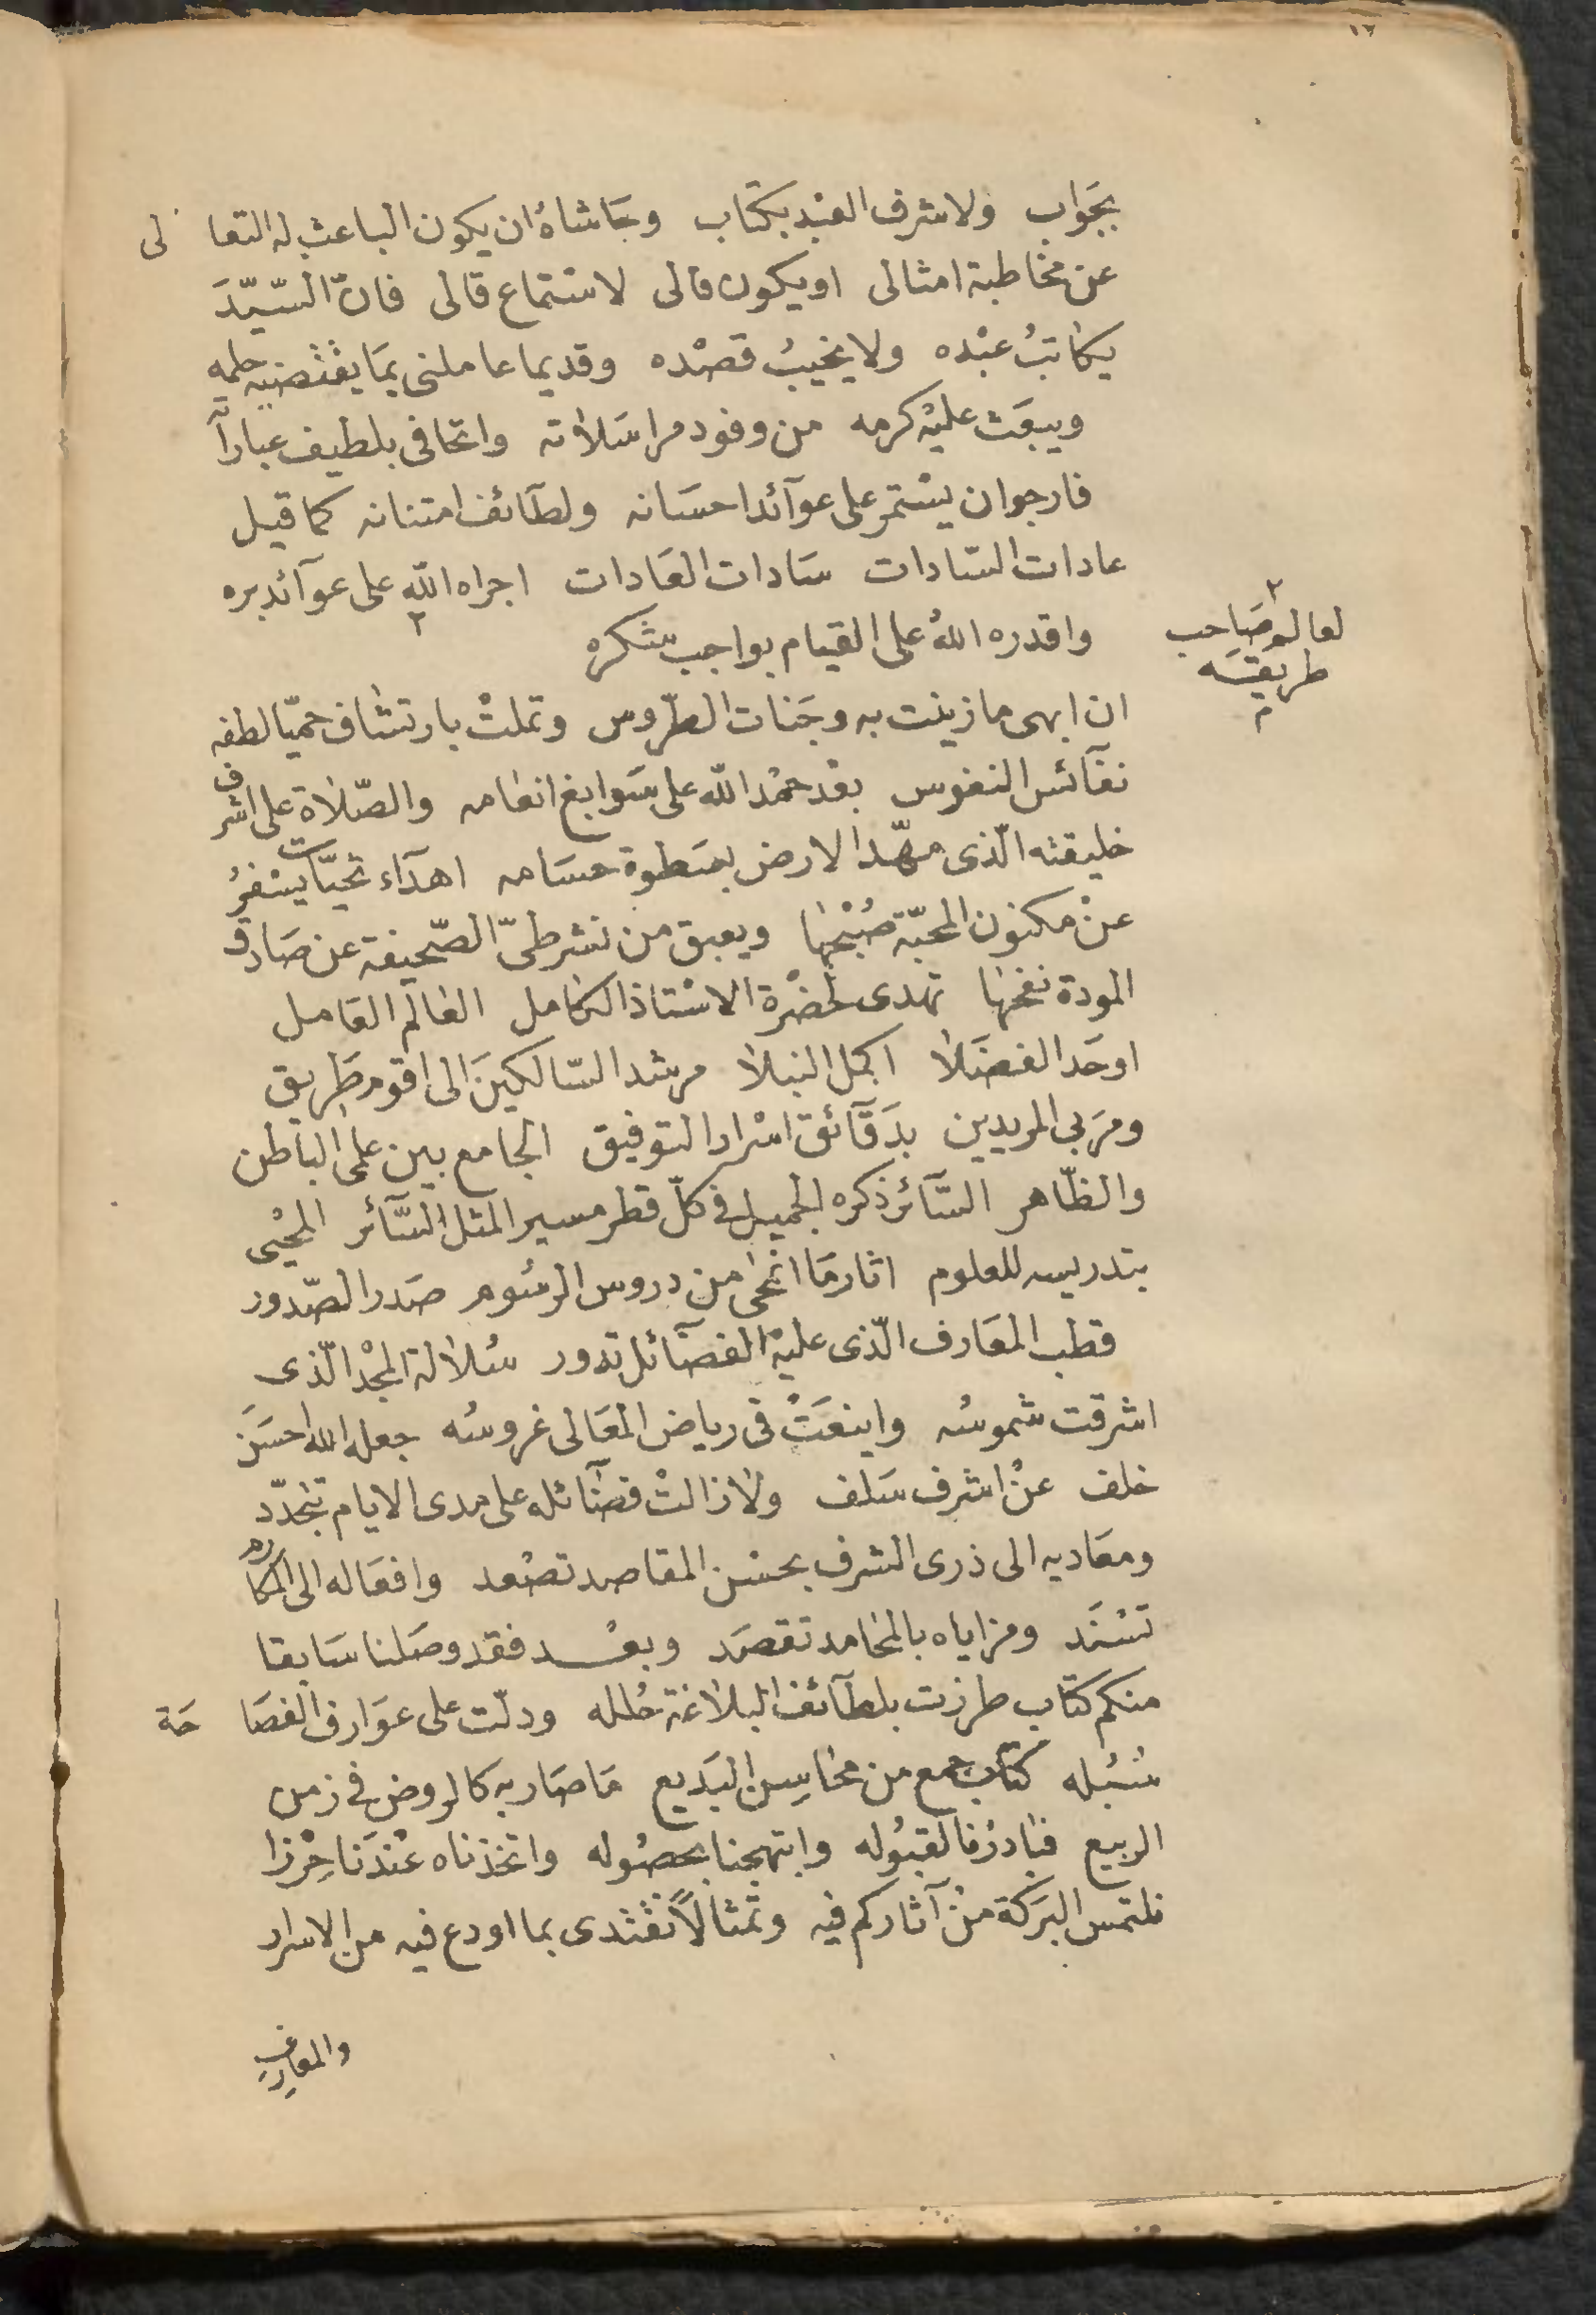 ١٢
بجَواب ولا شرف العَبْد بكتاب وحَاشاهُ ان يكون الباعث له التعالى
عن مخاطبة امثالى او يكون قالى لاستماع قالى فانّ السّيّدَ
يكاتبُ عبْده ولا يخيبُ قصْده وقديما عاملنى بمَا يقتضيه حلمه
ويبعَث عليْه كرمه من وفود مراسَلاته واتحافى بلطيف عباراته
فارجو ان يسْتمر على عوآئد احسَانه ولطآئف امتنانه كما قيل
عادات السّادات سَادات العَادات اجراه اللّه على عوآئد بره
واقدره اللهُ على القيام بواجب شكره
٢ لعالم صَاحب
طريقَه
ان ابهى ما زينت به وجَنات الطّروس وتملتْ بارتشاف حميّا لطفه
نفآئس النفوس بعْد حمْد اللّه على سَوابغ انعامه والصّلاة على اشرف
خليقته الّذى مهّد الارض بسَطوة حسَامه اهدَآء تحيّات يسْفرُ
عنْ مكنون المحبّة صُبْحها ويعبق من نشر طىّ الصّحيفة عن صَادق
المودة نفحها تهدى لحضْرة الاسْتاذ الكامل العالم العَامل
اوحَد الفضَلا اكمل النبلا مرشد السّالكينَ الى اقوم طَريق
ومرَبى المريدين بدَقآئق اسْرار التوفيق الجامع بين علمى الباطن
والظّاهر السّآئر ذكره الجميل فى كلّ قطر مسير المثل السّآئر المحْيى
بتدريسه للعلوم اثار مَا انمحى من دروس الرسُوم صَدر الصّدور
قطب المعَارف الّذى عليْه الفضآئل تدور سُلالة المجْد الّذى
اشرقت شموسُه واينعَتْ فى رياض المعَالى غروسُه جعله الله احسَن
خلف عنْ اشرف سَلف ولا زالتْ فضآئله على مدى الايام تتجدّد
ومعَاديه الى ذرى الشرف بحسْن المقاصد تصْعد وافعَاله الى المكارم
تسْنَد ومزاياه بالمحَامد تقصَد وبعْد فقد وصَلنا سَابقا
منكم كتاب طرزت بلطآئف البلاغة حُلله ودلّت على عوَارف الفصَاحَة
سُبُله كتاب جمع من محَاسِن البَديع مَا صَار به كالروض فى زمن
الربيع فبَادرْنا لقبُوله وابتهجنا بحصُوله واتخذناه عنْدَنا حِرْزا
نلتمس البَركة منْ آثاركم فيه وتمْثالاً نقْتدى بما اودع فيه من الاسرار
والمعارف